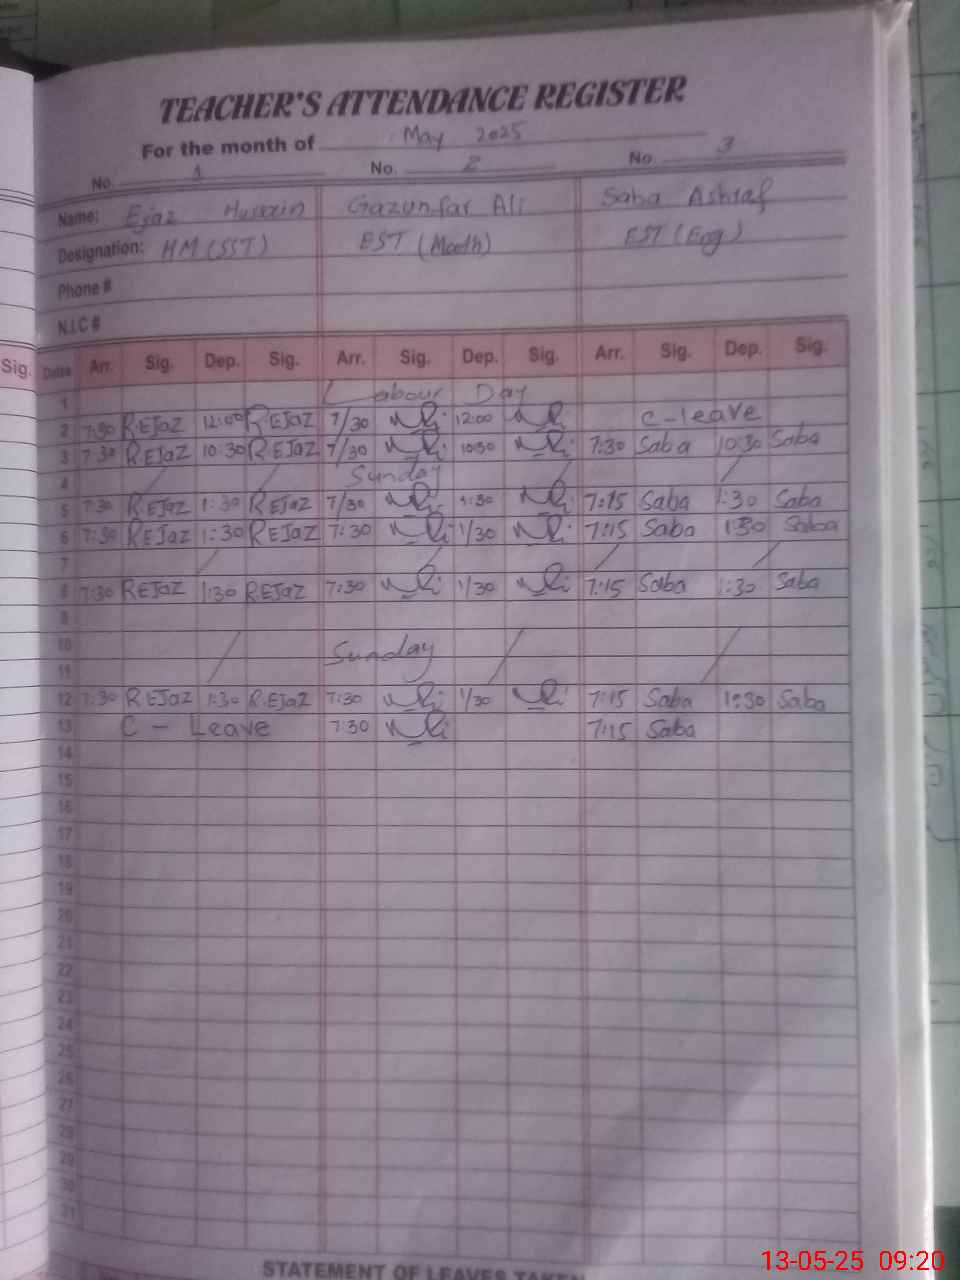 TEACHER'S ATTENDANCE REGISTER
For the month of May 2025
No. 1 No. 2 No. 3
Name: Ejaz Hussain Gazunfar Ali Saba Ashraf
Designation: HM (SST) EST (Math) EST (Eng)
Phone #
N.I.C #
Sig. Dates Arr. Sig. Dep. Sig. Arr. Sig. Dep. Sig. Arr. Sig. Dep. Sig.
1 Labour Day
2 7:30 REJaZ 12:00 REJaZ 7/30 12:00 C-leave
3 7:30 REJaZ 10:30 REJaZ 7/30 10:30 7:30 Saba 10:30 Saba
4 Sunday
5 7:30 REJaZ 1:30 REJaZ 7/30 1:30 7:15 Saba 1:30 Saba
6 7:30 REJaZ 1:30 REJaZ 7:30 1/30 7:15 Saba 1:30 Saba
7
8 7:30 REJaZ 1:30 REJaZ 7:30 1/30 7:15 Saba 1:30 Saba
9
10 Sunday
11
12 7:30 REJaZ 1:30 REJaZ 7:30 1/30 7:15 Saba 1:30 Saba
13 C - Leave 7:30 7:15 Saba
14
15
16
17
18
19
20
21
22
23
24
25
26
27
28
29
30
31
STATEMENT OF LEAVES TAKEN
13-05-25 09:20